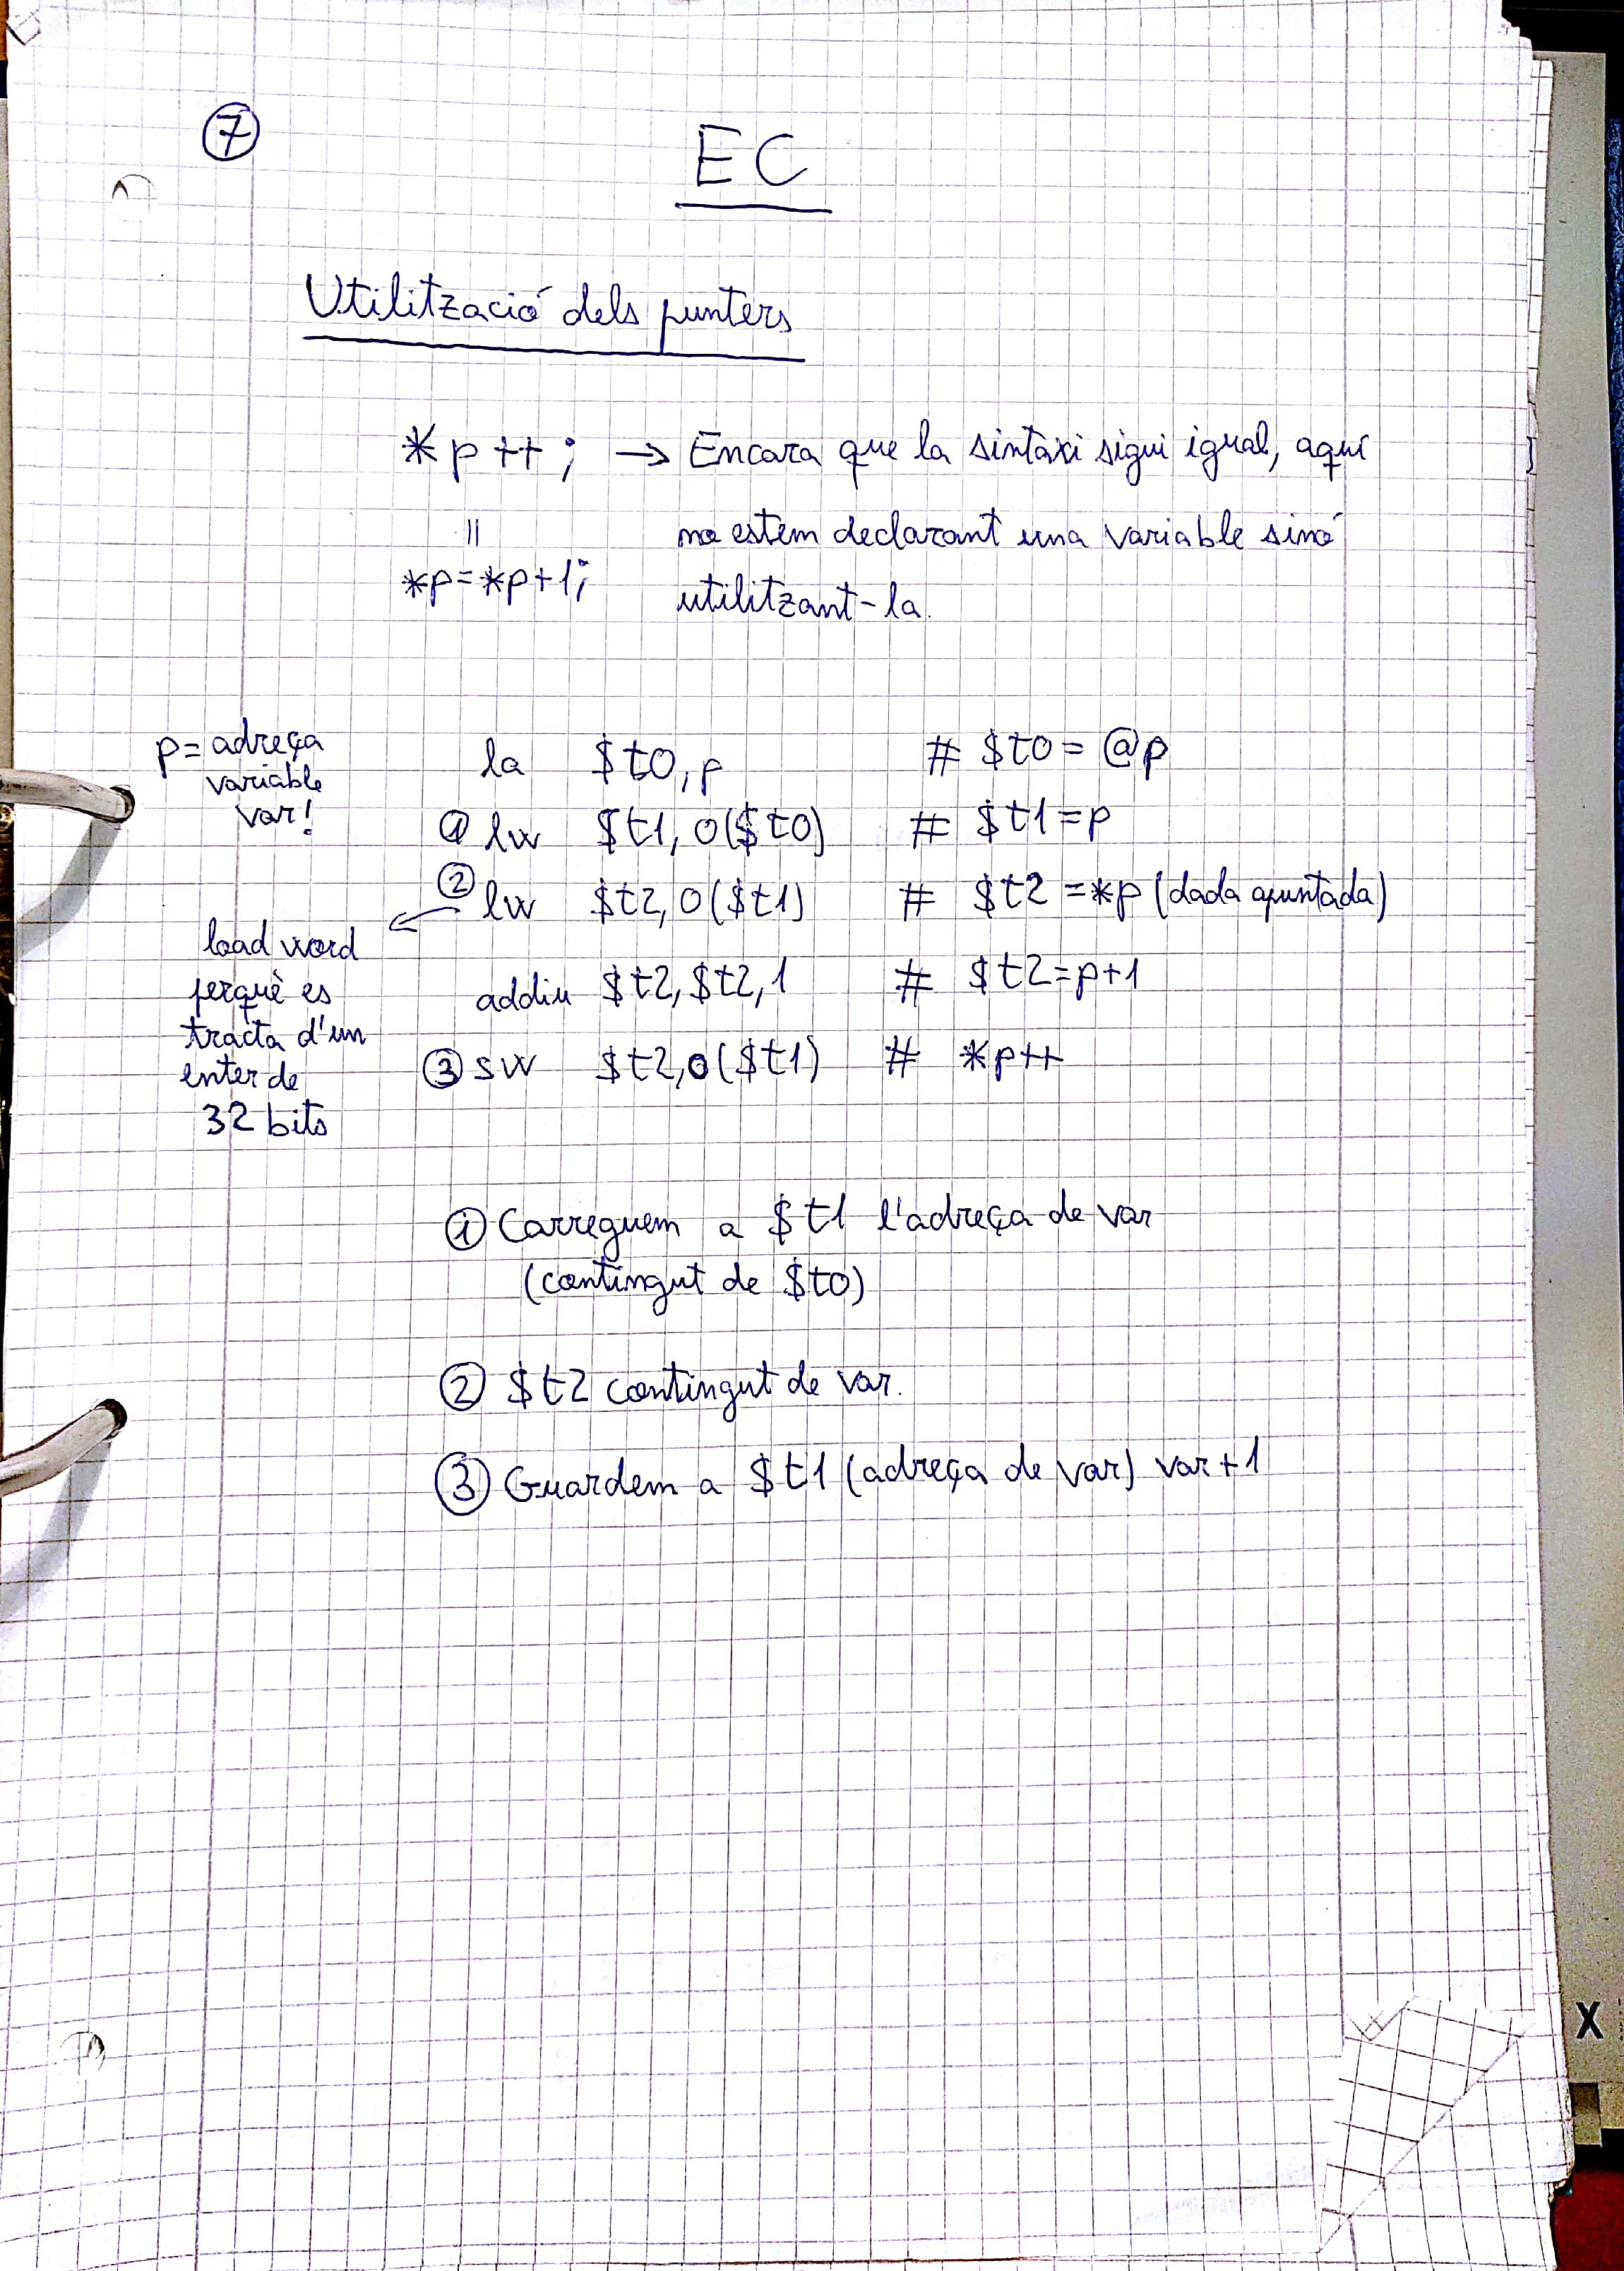 7
EC
Utilització dels punters
*p++; → Encara que la sintaxi sigui igual, aquí
no estem declarant una variable sinó
utilitzant-la.
||
*p=*p+1;
p= adreça
variable
var!
la $t0, p # $t0 = @p
① lw $t1, 0($t0) # $t1=p
② lw $t2, 0($t1) # $t2 =*p (dada apuntada)
addiu $t2, $t2, 1 # $t2=p+1
③ sw $t2, 0($t1) # *p++
load word
perquè es
tracta d'un
enter de
32 bits
① Carreguem a $t1 l'adreça de var
(contingut de $t0)
② $t2 contingut de var.
③ Guardem a $t1 (adreça de var) var+1
X